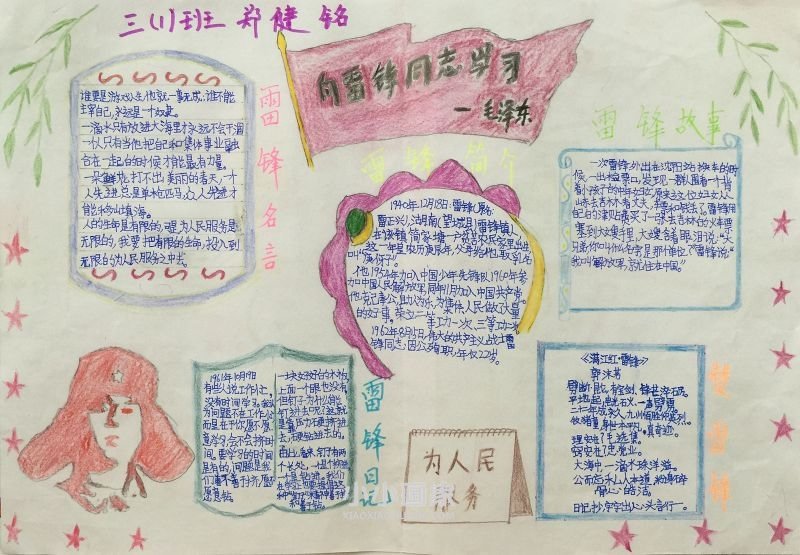 三(1)班 郑健铭
向雷锋同志学习
—毛泽东
雷锋名言
谁要是游戏人生,他就一事无成;谁不能
主宰自己,永远是一个奴隶。
一滴水只有放进大海里才永远不会干涸
一个人只有当他把自己和集体事业融
合在一起的时候才能最有力量。
一朵鲜花打不出美丽的春天,个
人先进总是单枪匹马,众人先进才
能移山填海。
人的生命是有限的,可是,为人民服务是
无限的,我要把有限的生命,投入到
无限的为人民服务之中去。
雷锋简介
1940年12月18日,雷锋(原名:
雷正兴)出生
这一年是农历庚辰年,父母给他取乳名
叫"庚伢子"。
他1954年加入中国少年先锋队,1960年参
加中国人民解放军,同年11月加入中国共产党。
他克己奉公,助人为乐,为集体、人民做了大量
的好事。荣立二等功一次、三等功二次
1962年8月15日,伟大的共产主义战士雷
锋同志,因公殉职,年仅22岁。
雷锋故事
一次雷锋外出在沈阳站换车的时
候,一出检票口,发现一群人围着一个背
着小孩子的中年妇女,原来这位妇女从
山东去吉林看丈夫,车票和钱丢了。雷锋用自
己的津贴费买了一张去吉林的火车票
塞到大嫂手里,大嫂含着眼泪说:"大
兄弟,你叫什么名字,是哪个单位的?"雷锋说:"
我叫解放军,就住在中国。"
雷锋日记
1961年10月19日
有些人说工作忙、
没有时间学习。我认
为问题不在工作忙,
而是在于你愿不愿
意学习,会不会挤时
间。要学习的时间
是有的,问题是我
们善不善于挤,愿不
愿意钻。
一块好好的木板,
上面一个眼也没有,
但钉子为什么能
钉进去呢?这就
是靠压力硬挤进
去,硬钻进去的。
由此看来,钉子有两
个长处:一个是挤劲,
一个是钻劲。我们
为人民
服务
赞雷锋
《满江红·雷锋》
郭沫若
二十二年成永久,九州万国
大海中一滴水珠洋溢。
日记抄,字字出心头,言行一。
小小画家